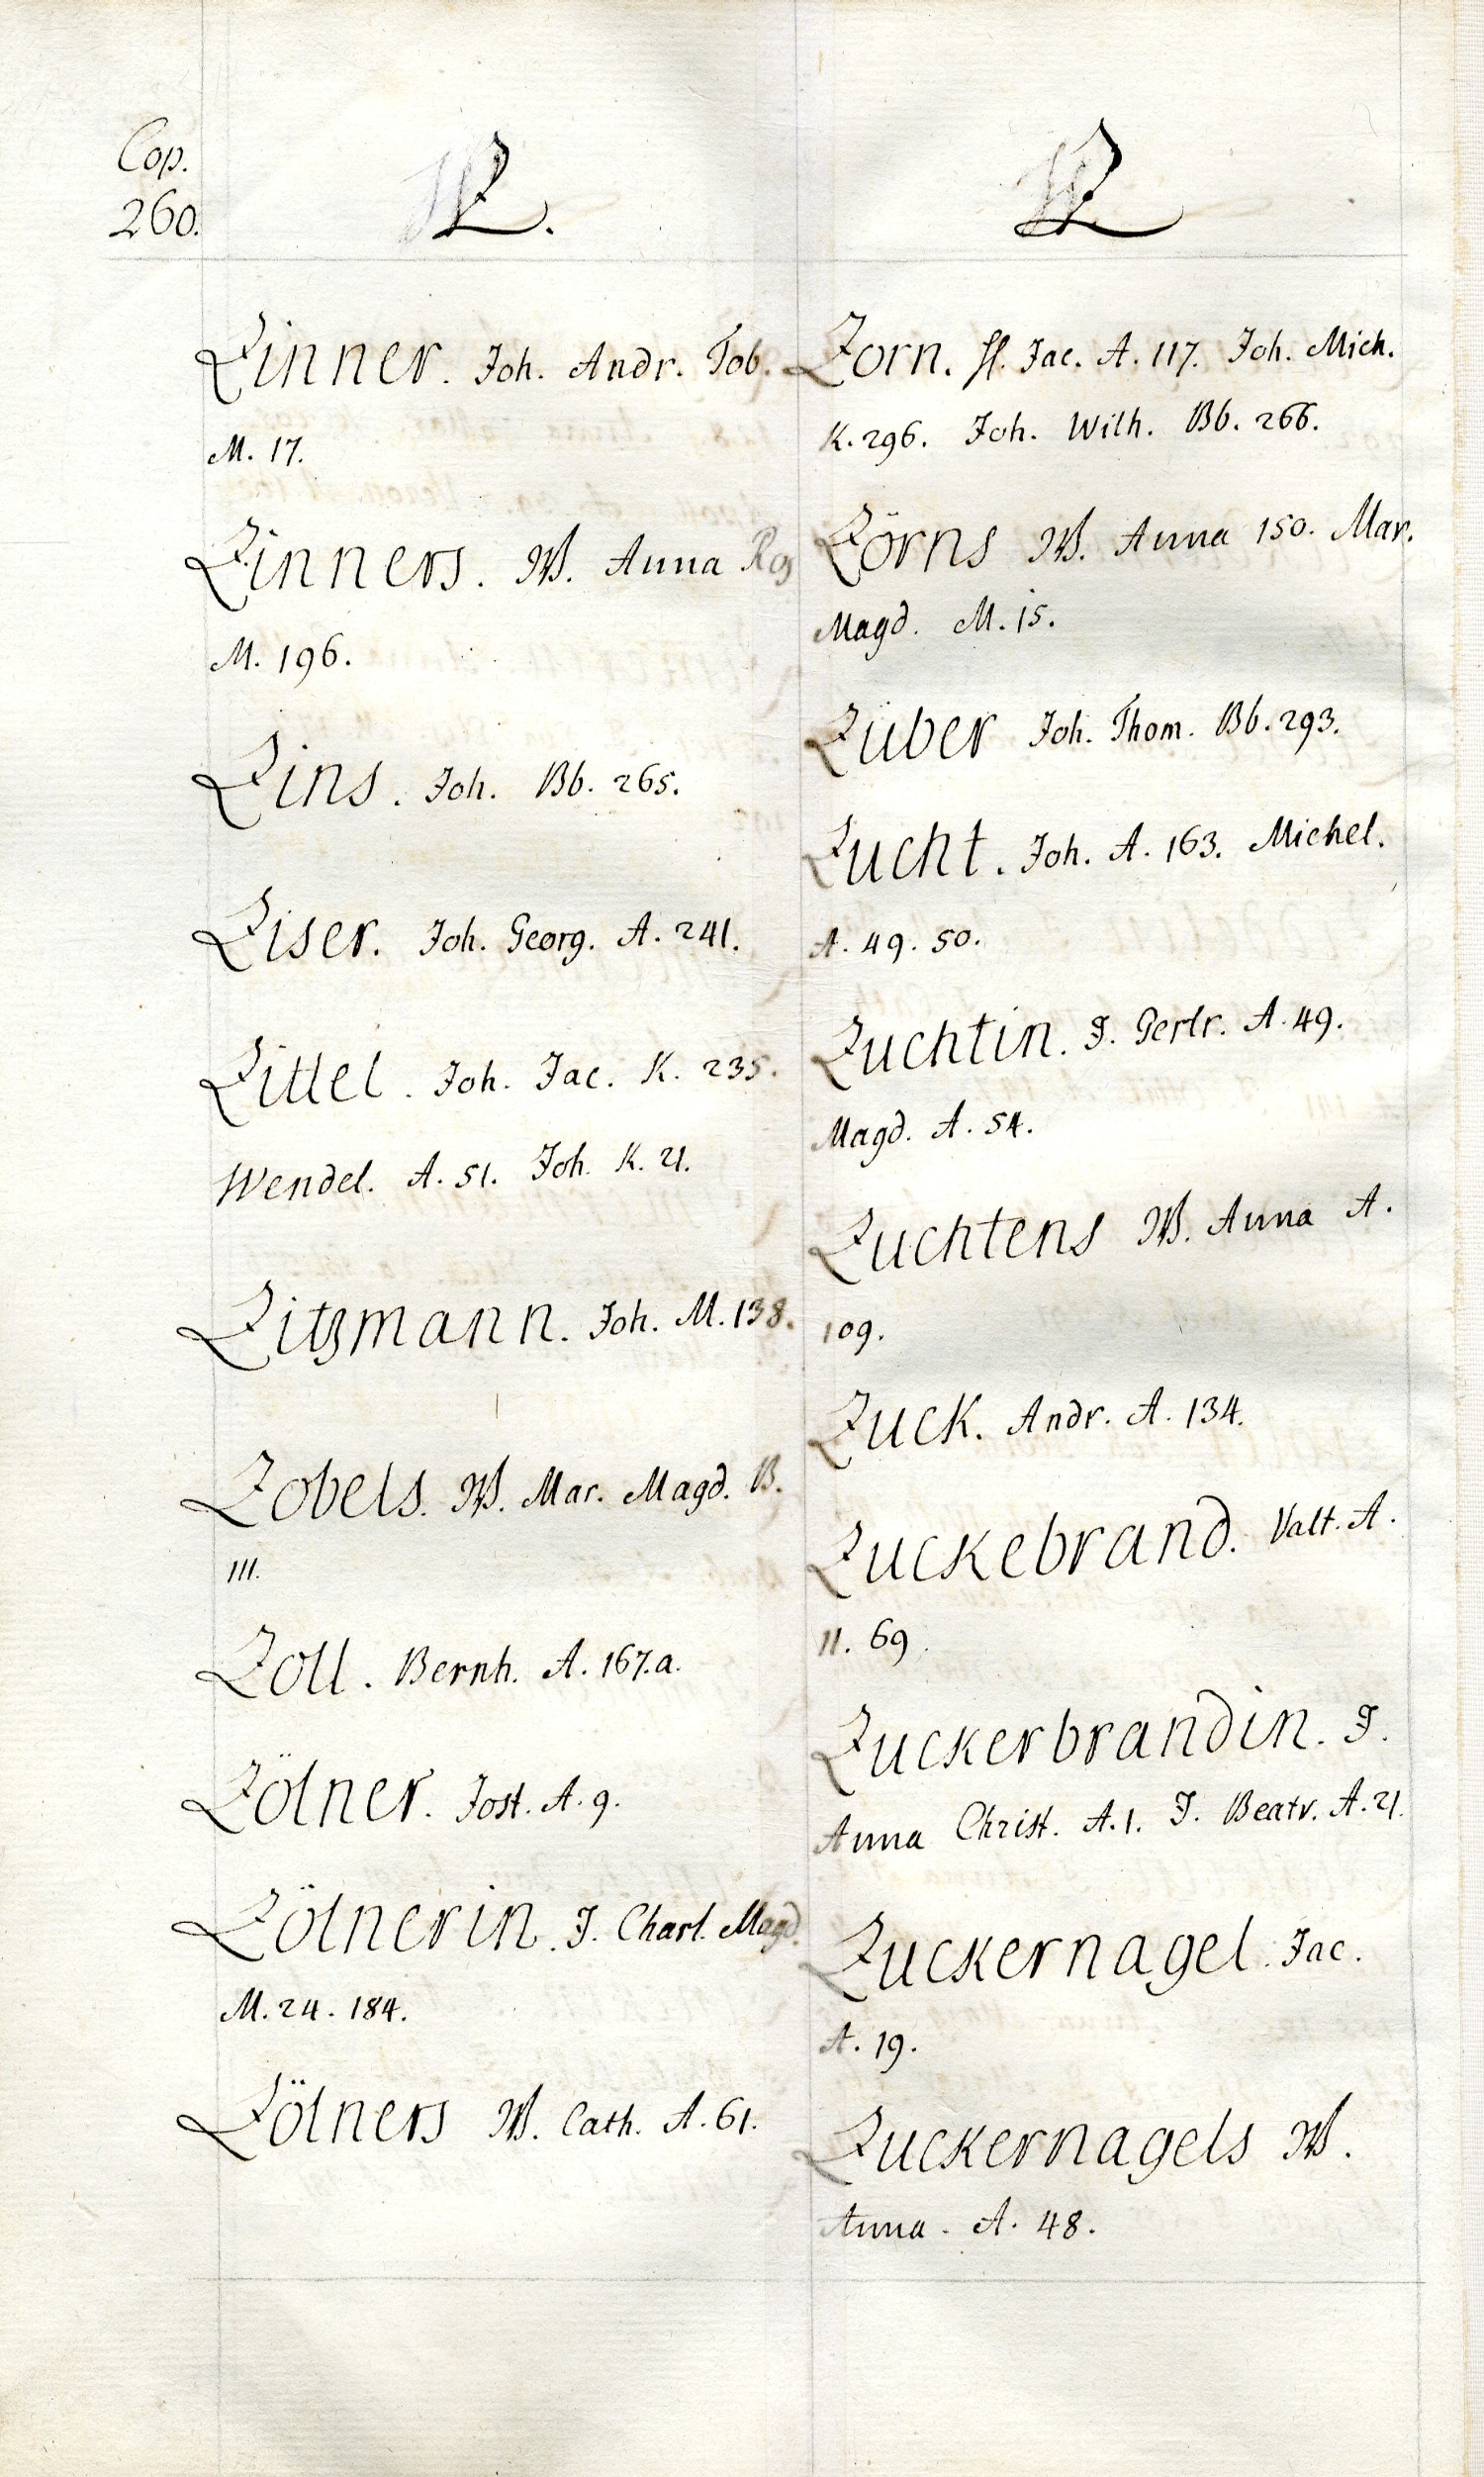 Cop.
260.
Z.
Zinner. Joh. Andr. Tob.
M. 17.
Zinners. W. Anna Ros
M. 196.
Zins. Joh. Bb. 265.
Ziser. Joh. Georg. A. 241.
Zittel. Joh. Jac. K. 235.
Wendel. A. 51. Joh. K. 21.
Zitzmann. Joh. M. 138.
Zobels. W. Mar. Magd. B.
111.
Zoll. Bernh. A. 167.a.
Zölner. Jost. A. 9.
Zölnerin. J. Charl. Magd.
M. 24. 184.
Zölners W. Cath. A. 61.
Z
Zorn. H. Jac. A. 117. Joh. Mich.
K. 296. Joh. Wilh. Bb. 266.
Zörns W. Anna 150. Mar.
Magd. M. 15.
Züber Joh. Thom. Bb. 293.
Zucht. Joh. A. 163. Michel.
A. 49. 50.
Zuchtin. J. Gertr. A. 49.
Magd. A. 54.
Zuchtens W. Anna A.
109.
Zuck. Andr. A. 134.
Zuckebrand. Valt. A.
11. 69.
Zuckerbrandin. J.
Anna Christ. A. 1. J. Beatr. A. 21.
Zuckernagel. Jac.
A. 19.
Zuckernagels W.
Anna. A. 48.